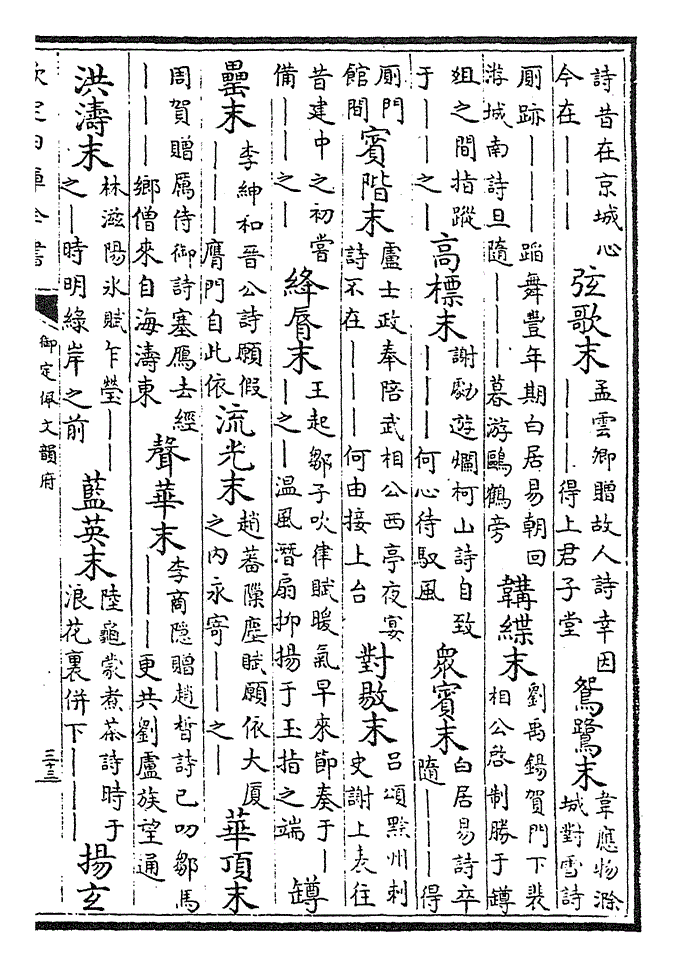 詩昔在京城心
今在｜｜｜
弦歌末
孟雲卿贈故人詩幸因
｜｜｜得上君子堂
鴛鷺末
韋應物滁
城對雪詩
廁跡｜｜｜蹈舞豐年期白居易朝回
游城南詩旦隨｜｜｜暮游鷗鶴旁
韝緤末
劉禹錫賀門下裴
相公啓制勝于罇
俎之間指蹤
于｜｜之｜
高標末
謝勮遊爛柯山詩自致
｜｜｜何心待馭風
衆賓末
白居易詩卒
隨｜｜｜得
廁門
館間
賓階末
盧士政奉陪武相公西亭夜宴
詩不在｜｜｜何由接上台
對敭末
呂頌黔州刺
史謝上表往
昔建中之初嘗
備｜｜之｜
絳脣末
王起鄒子吹律賦暖氣早來節奏于｜
｜之｜温風潛扇抑揚于玉指之端
罇
罍末
李紳和晉公詩願假
｜｜｜膺門自此依
流光末
趙蕃隙塵賦願依大厦
之内永寄｜｜之｜
華頂末
周賀贈厲侍御詩塞鴈去經
｜｜｜鄉僧來自海濤東
聲華末
李商隱贈趙晳詩已叨鄒馬
｜｜｜更共劉盧族望通
洪濤末
林滋陽氷賦乍瑩｜｜
之｜時明綠岸之前
藍英末
陸龜蒙煮茶詩時于
浪花裏併下｜｜｜
揚玄
欽定四庫全書
御定佩文韻府
三十三